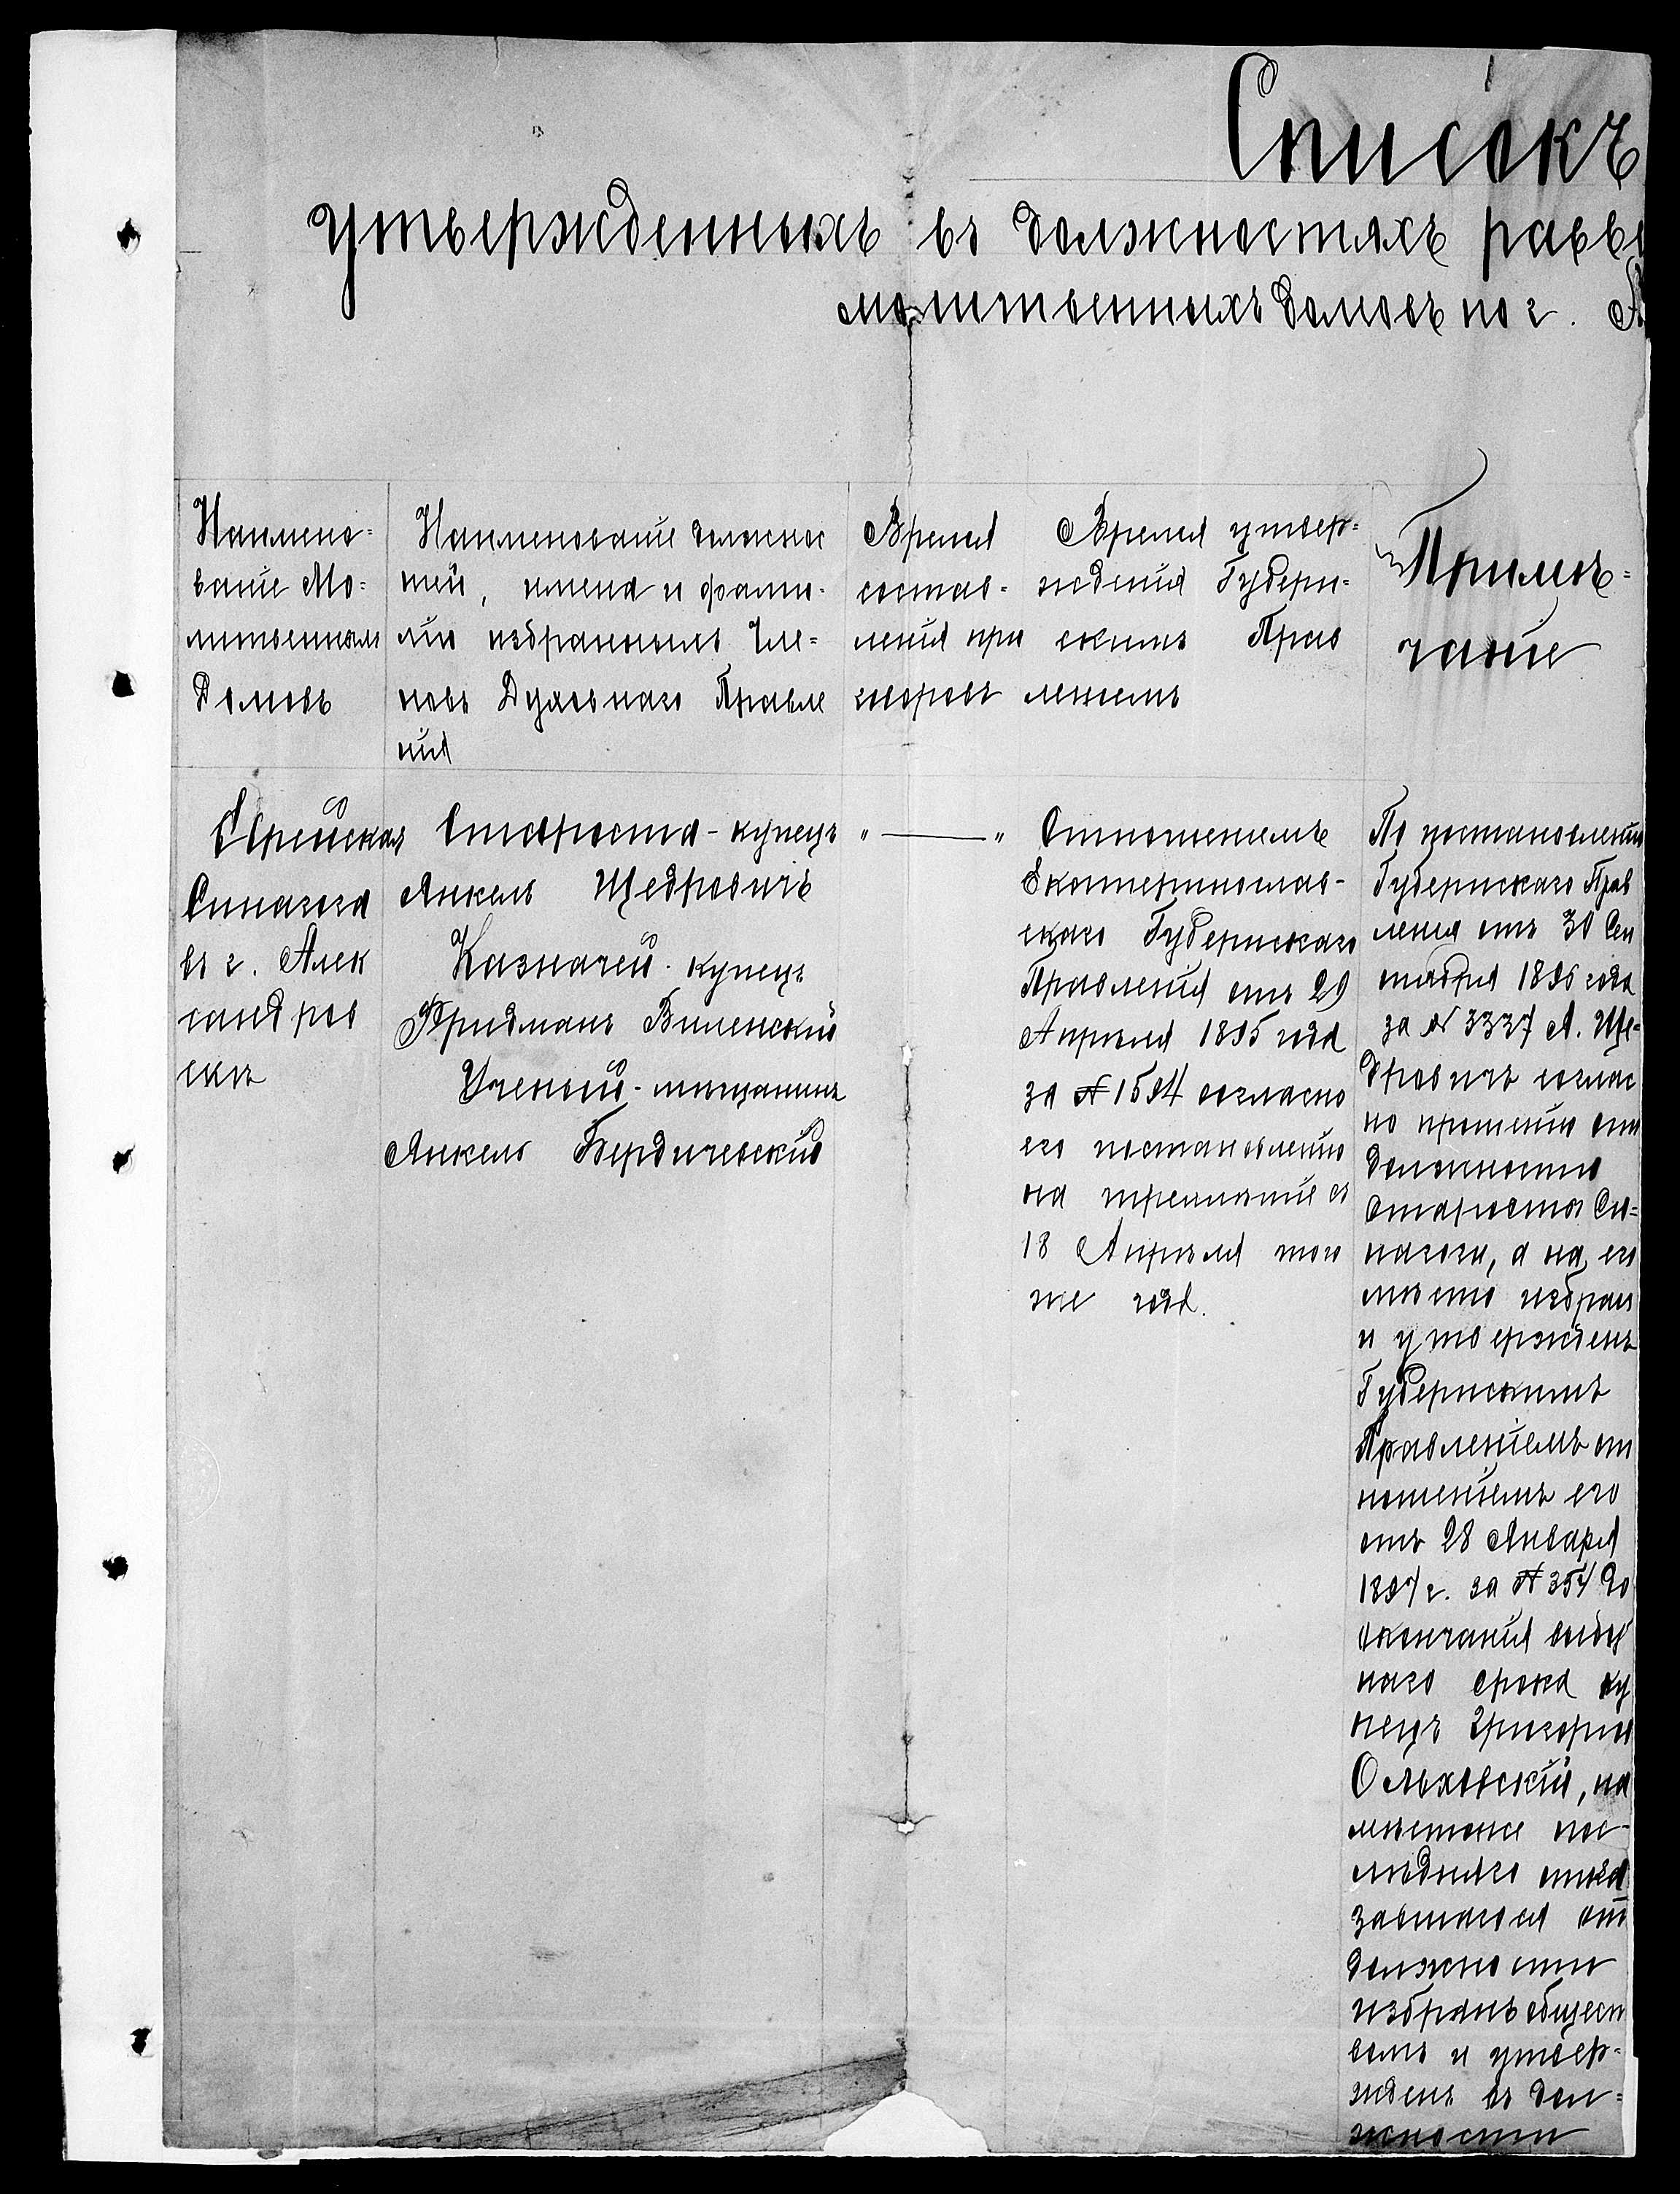 Списокъ
утвержденныхъ въ должностяхъ равви
молитвенныхъ домовъ по г. А
Наимено-
ваніе Мо-
литвенныхъ
Домовъ
Наименованіе должнос
тей, имена и фами-
лію избранныхъ Чле-
новъ Духовнаго Правле
нія
Время
состав-
ленія при
говоровъ
Время утвер-
жденія Губерн-
скимъ Прав
леніемъ
Примѣ-
чаніе
Еврейская
Синагога
въ г. Алек
сандров
скѣ
Староста - купецъ
Янкель Щедровичъ
Казначей - купецъ
Фридманъ Виленскій
Ученый - мѣщанинъ
Янкель Бердичевскій
" — "
Отношеніемъ
Екатеринослав-
скаго Губернскаго
Правленія отъ 29
Апрѣля 1895 года
за № 1594 согласно
его постановленію
на трехлѣтіе съ
18 Апрѣля того
же года.
По постановленію
Губернскаго Прав
ленія отъ 30 Сен
тября 1896 года
за № 3337 Я. Ще-
дровичъ соглас
но прошенію отъ
должности
Старосты Си-
нагоги, а на его
мѣсто избранъ
и утвержденъ
Губернскимъ
Правленіемъ от
ношеніемъ его
отъ 28 Января
1897 г. за № 354 до
окончанія
наго срока ку
пецъ Григорій
Ольховскій, на
мѣстоже пос-
лѣдняго отка
завшагося отъ
должности
избранъ общест
вомъ и утвер-
жденъ въ дол-
жности